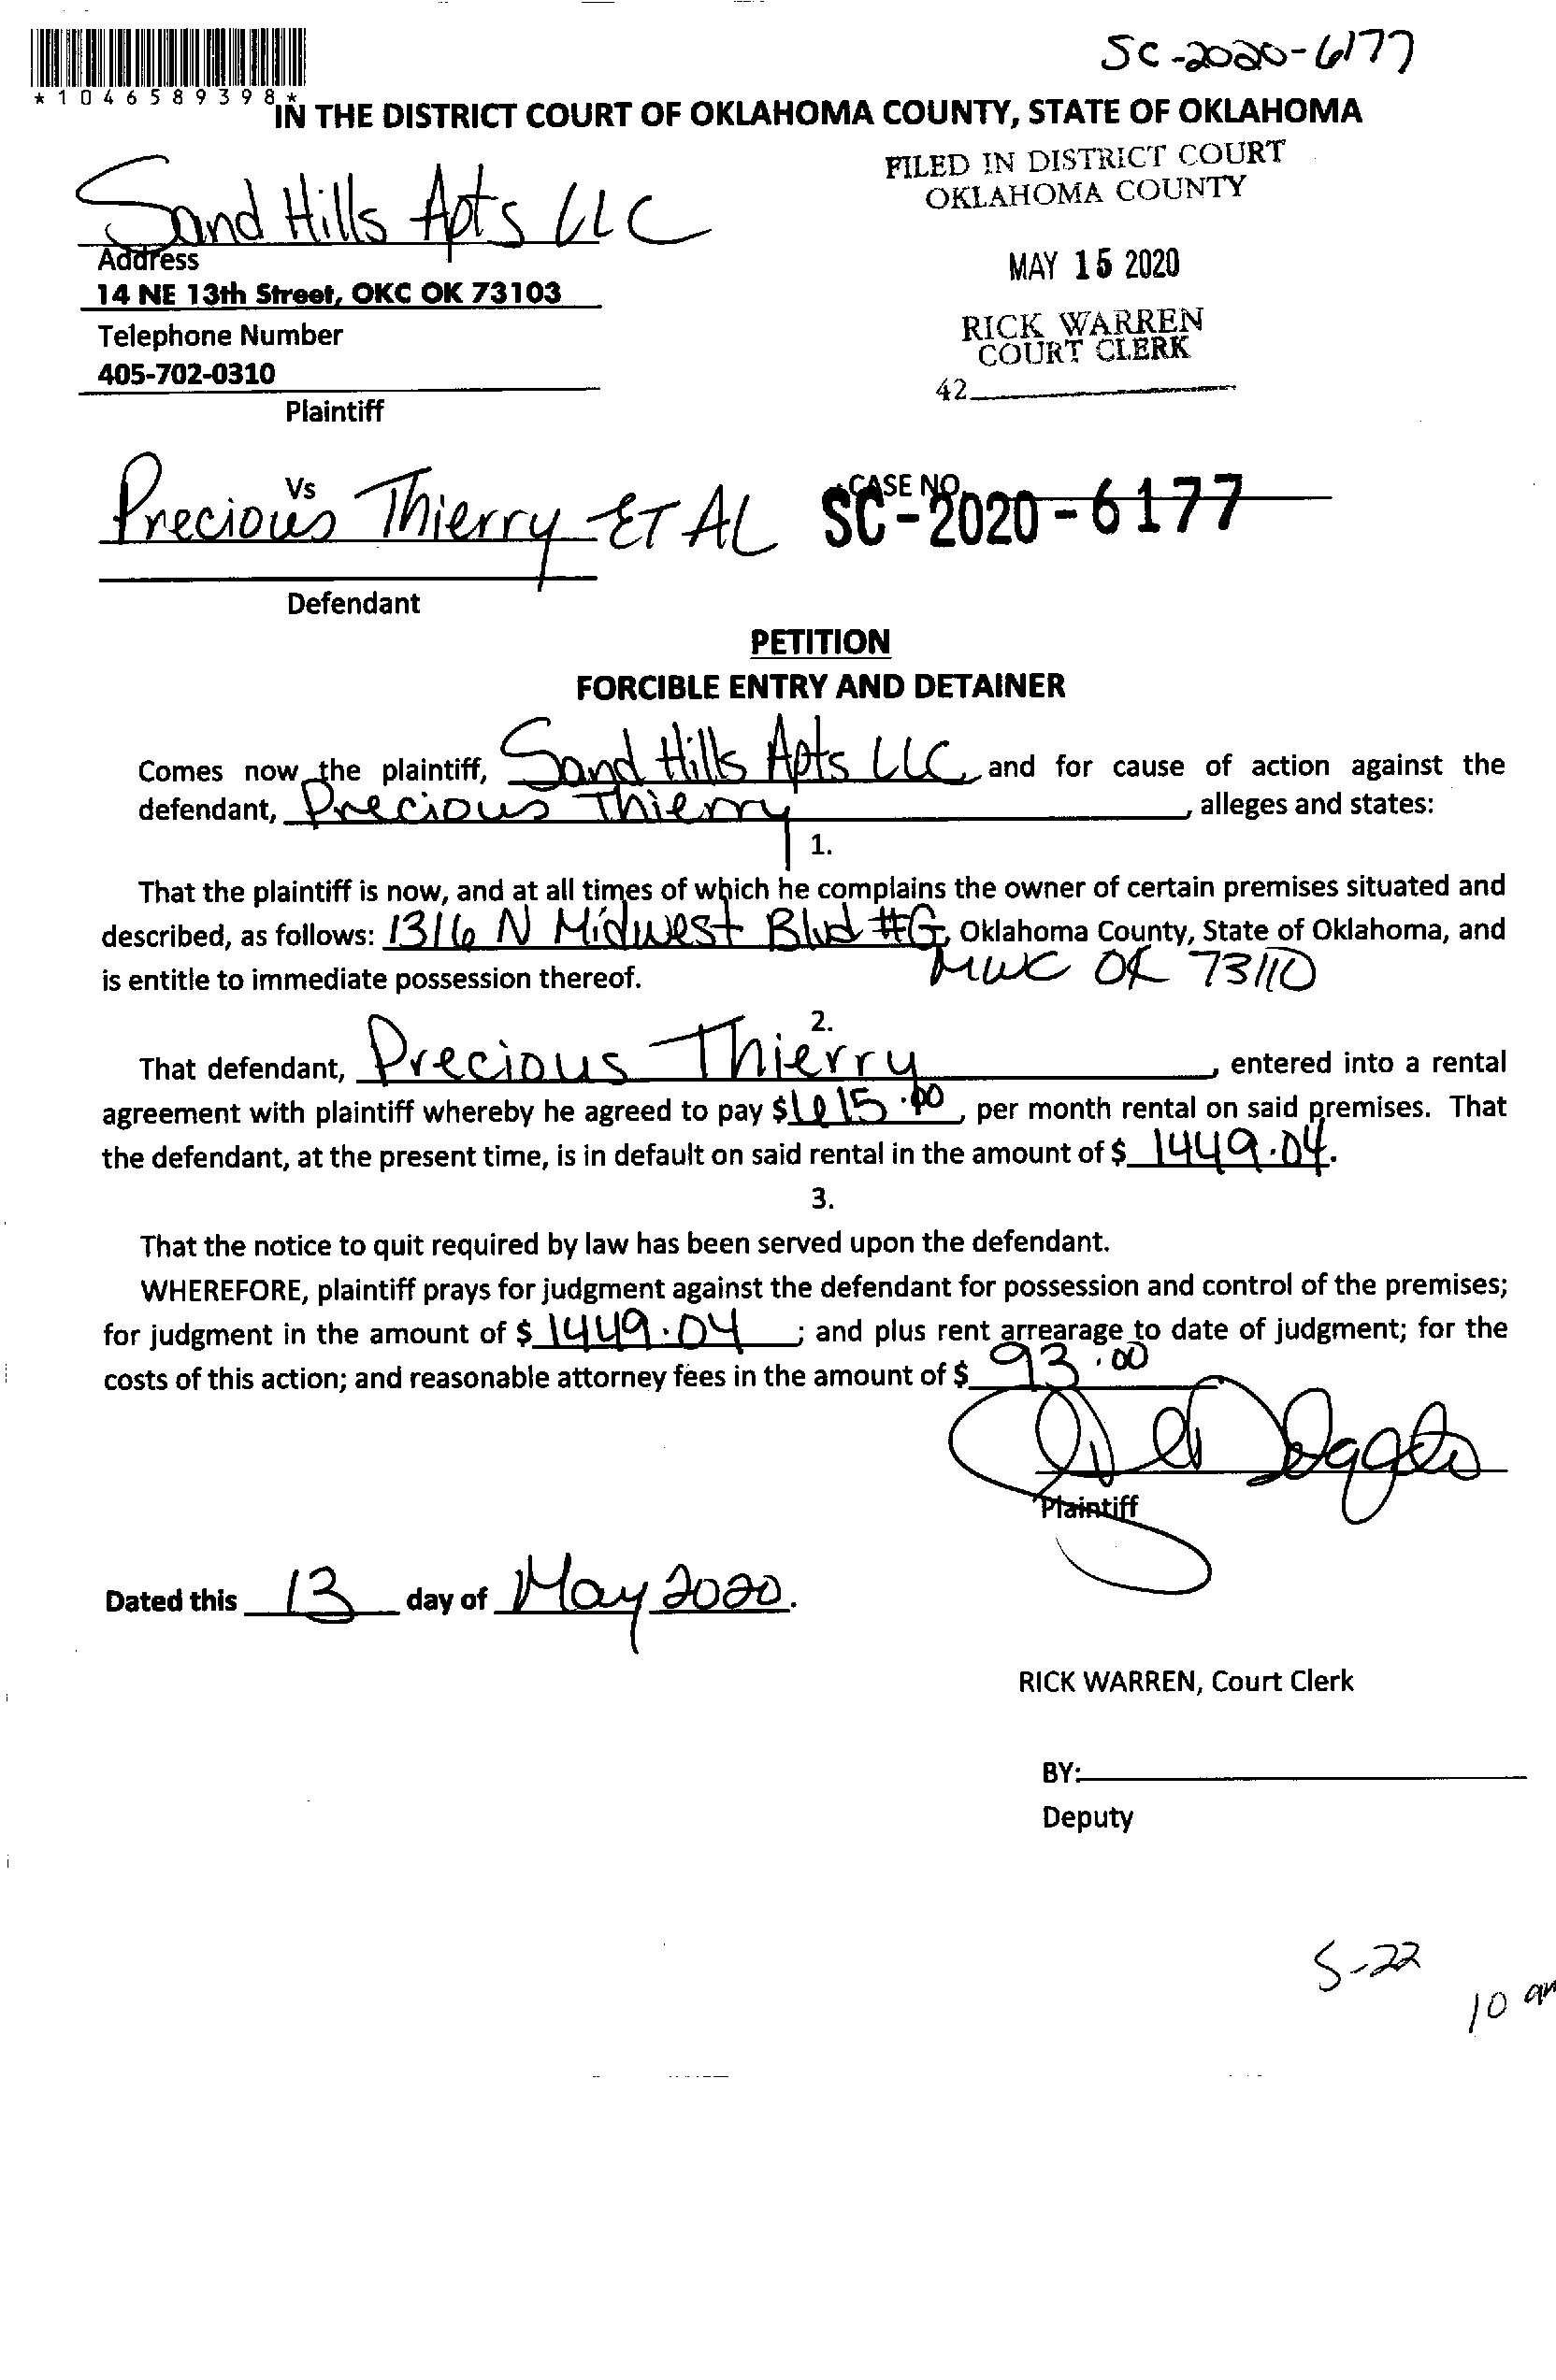 SC-2020-6177
*1046589398*
IN THE DISTRICT COURT OF OKLAHOMA COUNTY, STATE OF OKLAHOMA
FILED IN DISTRICT COURT
OKLAHOMA COUNTY
Sand Hills Apts LLC
Address
MAY 15 2020
14 NE 13th Street, OKC OK 73103
Telephone Number
RICK WARREN
COURT CLERK
405-702-0310
42
Plaintiff
Vs
Precious Thierry ET AL
CASE NO.
SC-2020-6177
Defendant
PETITION
FORCIBLE ENTRY AND DETAINER
Comes now the plaintiff, Sand Hills Apts LLC, and for cause of action against the
defendant, Precious Thierry, alleges and states:
1.
That the plaintiff is now, and at all times of which he complains the owner of certain premises situated and
described, as follows: 1316 N Midwest Blvd #G, Oklahoma County, State of Oklahoma, and
is entitle to immediate possession thereof. MWC OK 73110
2.
That defendant, Precious Thierry, entered into a rental
agreement with plaintiff whereby he agreed to pay $615.00, per month rental on said premises. That
the defendant, at the present time, is in default on said rental in the amount of $ 1449.04.
3.
That the notice to quit required by law has been served upon the defendant.
WHEREFORE, plaintiff prays for judgment against the defendant for possession and control of the premises;
for judgment in the amount of $ 1449.04; and plus rent arrearage to date of judgment; for the
costs of this action; and reasonable attorney fees in the amount of $ 93.00
Plaintiff
Dated this 13 day of May 2020.
RICK WARREN, Court Clerk
BY:
Deputy
5-22
10 am